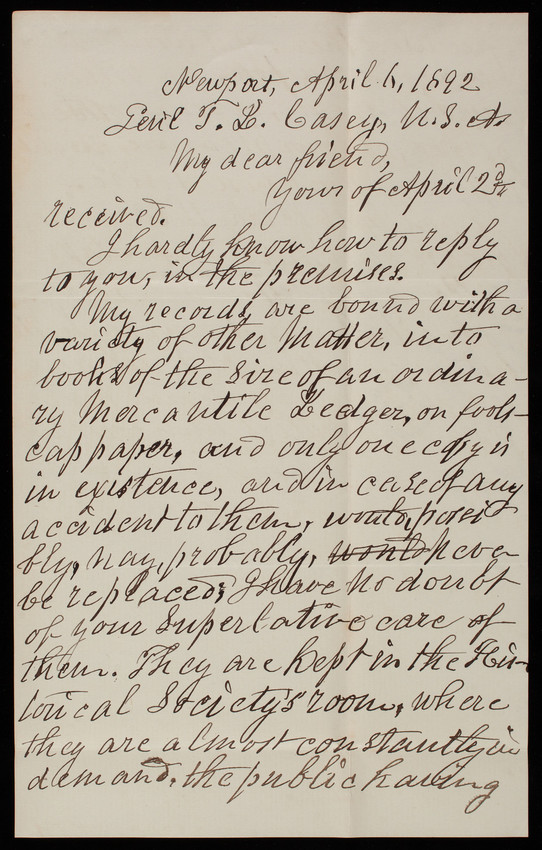 Newport, April 6, 1892
Genl T. L. Casey, U.S.A.
My dear friend,
Yours of April 2d
received.
I hardly know how to reply
to you, in the premises.
My records are bound with a
variety of other Matter, into
books of the size of an ordina-
ry Mercantile Ledger, on fools-
cap paper, and only one copy is
in existence, and in case of any
accident to them, would, possi
bly, nay, probably, would never
be replaced; I have no doubt
of your Superlative care of
them. They are kept in the His-
torical Society's room, where
they are almost constantly in
demand, the public having